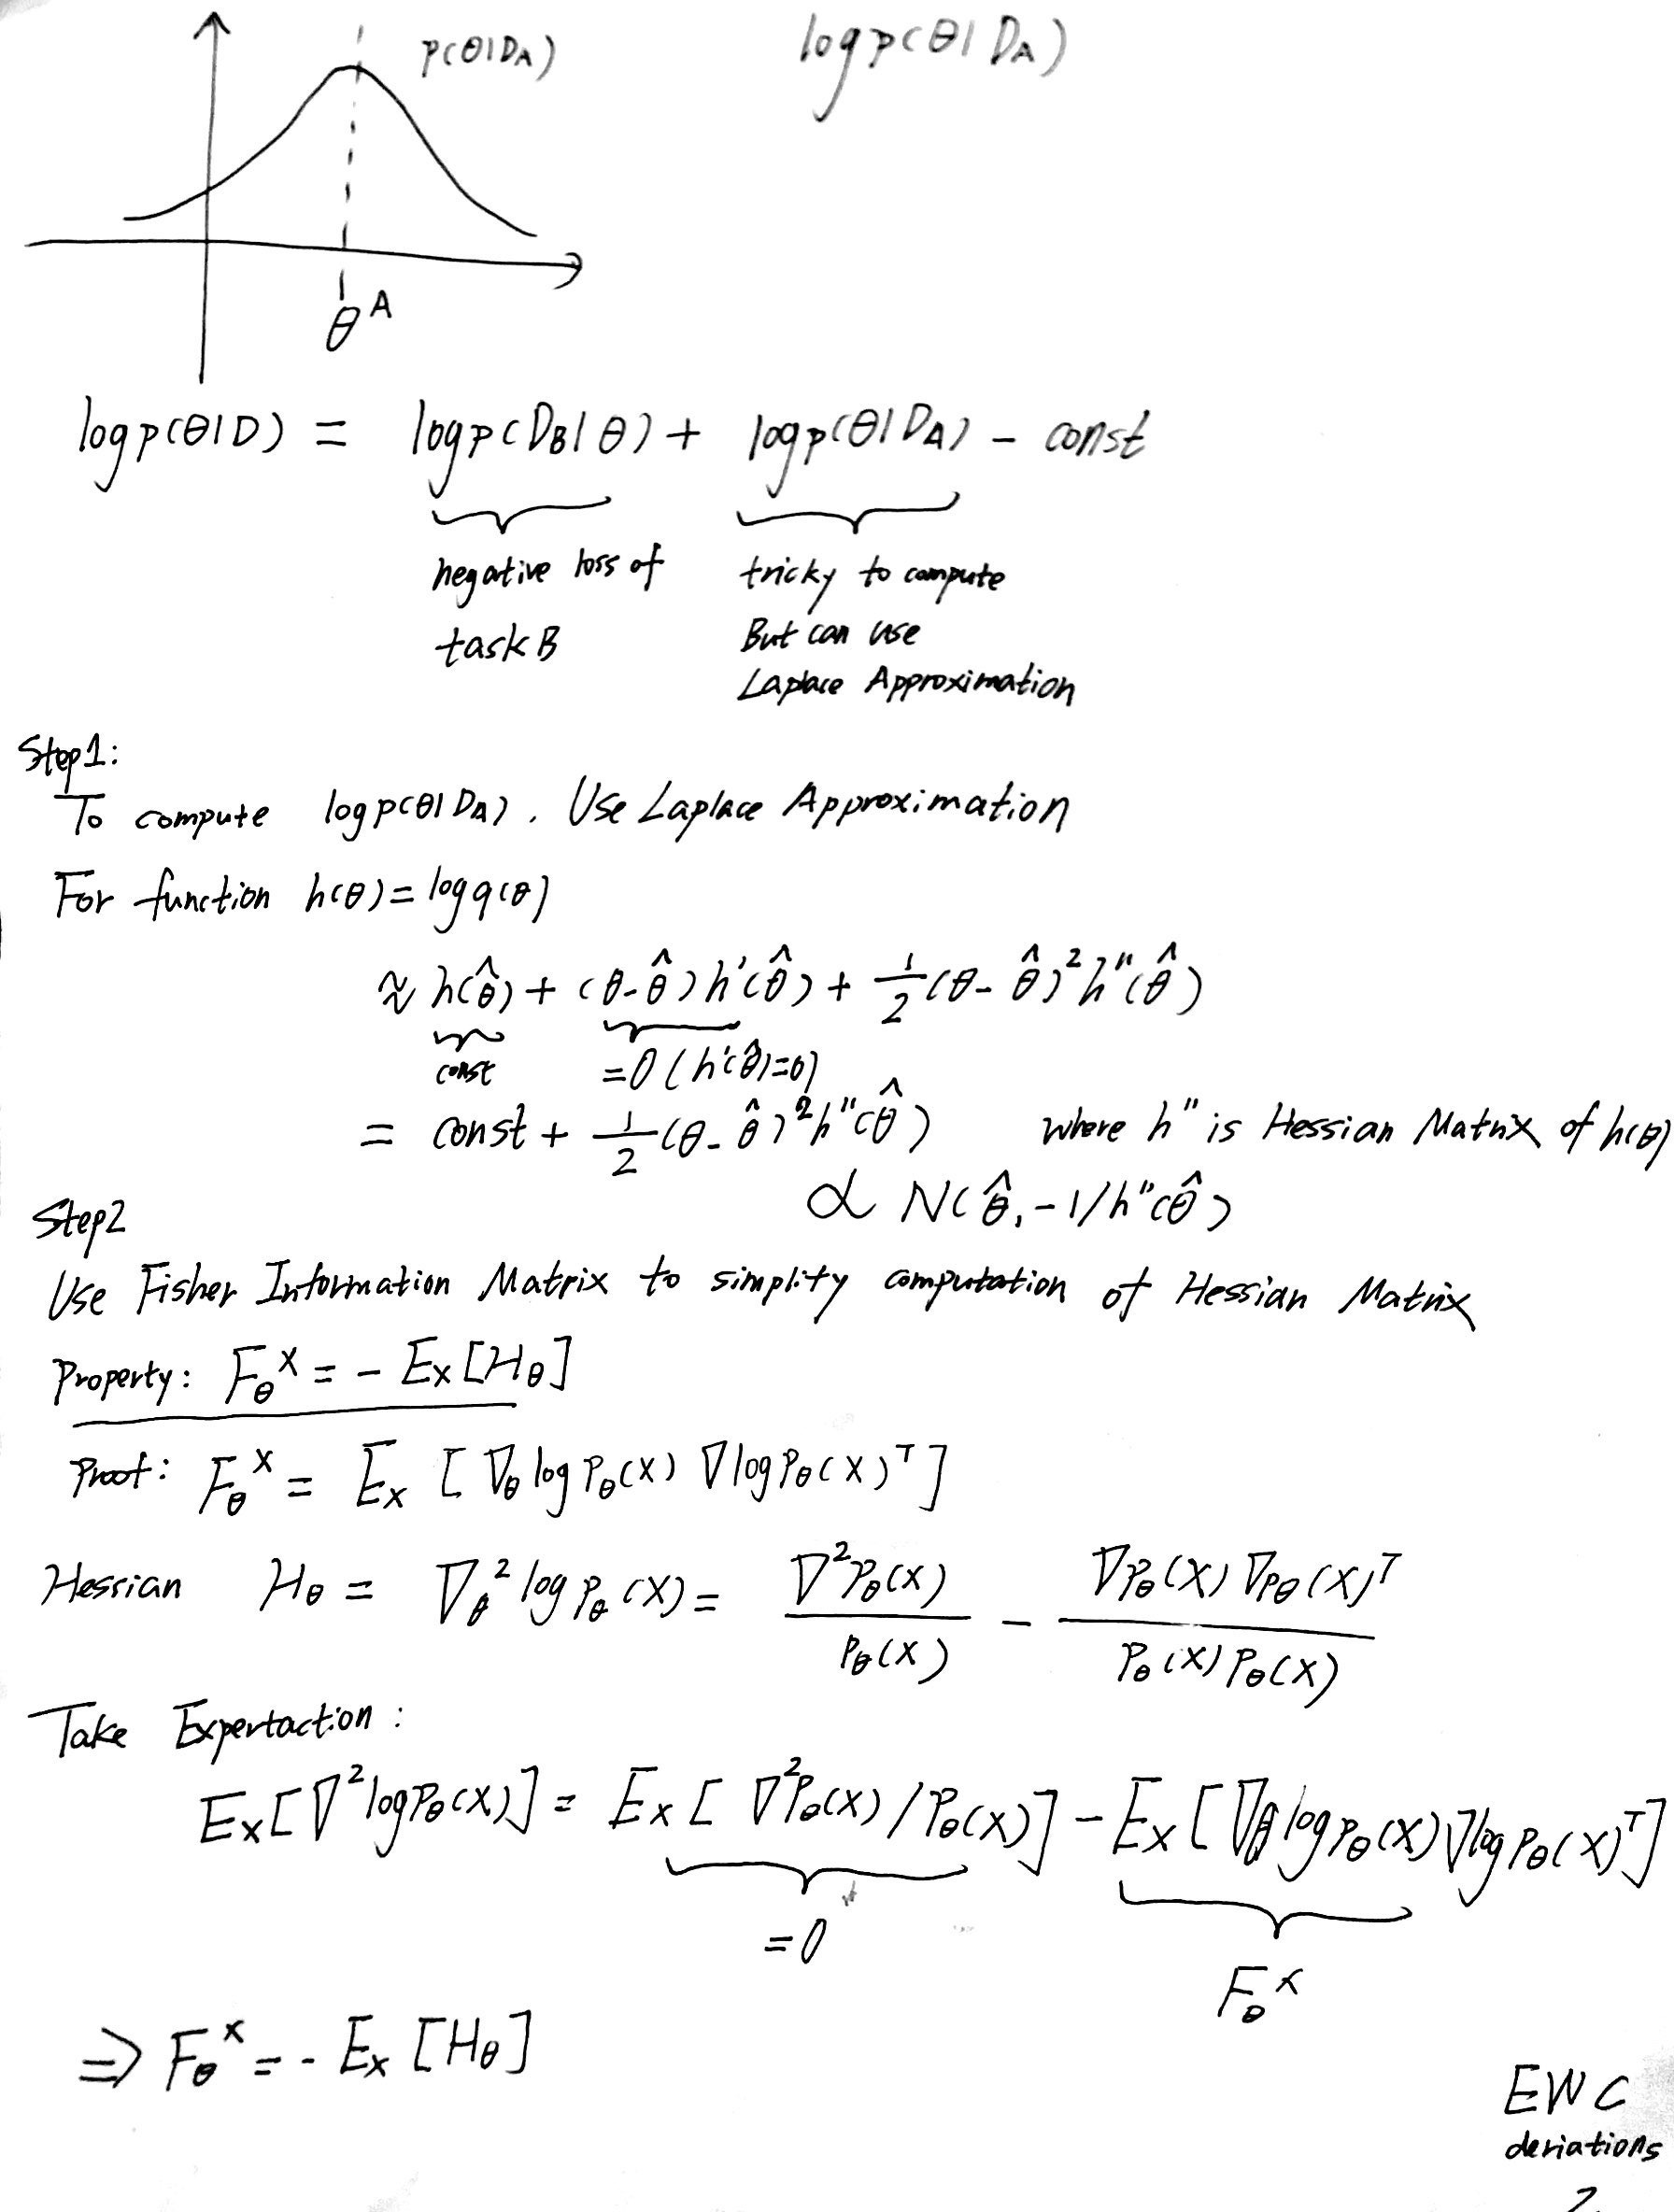 p(θ|D_A)    log p(θ|D_A)
θ^A
log p(θ|D) = log p(D_B|θ) + log p(θ|D_A) - const
negative loss of    tricky to compute
task B    But can use
Laplace Approximation
Step1:
To compute log p(θ|D_A). Use Laplace Approximation
For function h(θ) = log q(θ)
≈ h(θ̂) + (θ-θ̂)h'(θ̂) + 1/2(θ-θ̂)²h"(θ̂)
const    =0 (h'(θ̂)=0)
= const + 1/2(θ-θ̂)²h"(θ̂)    where h" is Hessian Matrix of h(θ)
∝ N(θ̂, -1/h"(θ̂))
Step2
Use Fisher Information Matrix to simplify computation of Hessian Matrix
Property: F_θ^X = - E_X[H_θ]
Proof: F_θ^X = E_X [∇_θ log P_θ(X) ∇log P_θ(X)^T]
Hessian H_θ = ∇_θ² log P_θ(X) = ∇²P_θ(X) / P_θ(X) - ∇P_θ(X) ∇P_θ(X)^T / P_θ(X) P_θ(X)
Take Expertaction:
E_X[∇² log P_θ(X)] = E_X[∇²P_θ(X)/P_θ(X)] - E_X[∇_θ log P_θ(X) ∇log P_θ(X)^T]
=0    F_θ^X
⇒ F_θ^X = - E_X[H_θ]
EWC
deriations